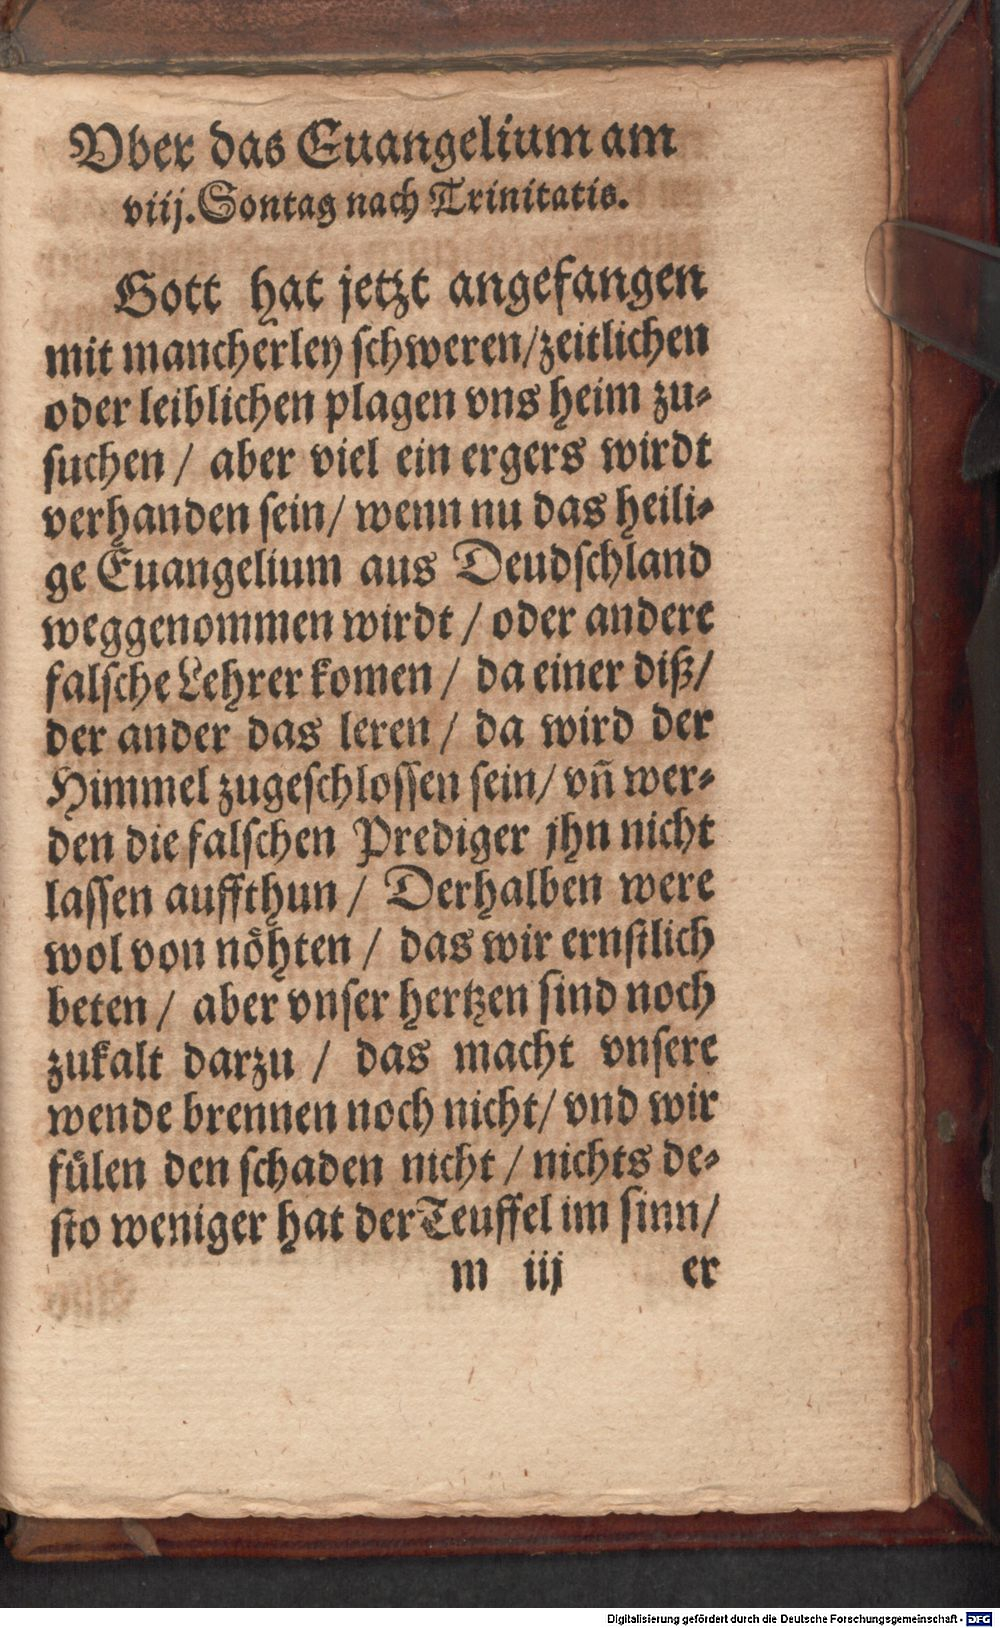 Vber das Euangelium am
viij. Sontag nach Trinitatis.
Gott hat jetzt angefangen
mit mancherley schweren/zeitlichen
oder leiblichen plagen vns heim zu-
suchen / aber viel ein ergers wirdt
verhanden sein/ wenn nu das heili-
ge Euangelium aus Deudschland
weggenommen wirdt / oder andere
falsche Lehrer komen / da einer diß/
der ander das leren / da wird der
Himmel zugeschlossen sein/ vñ wer-
den die falschen Prediger jhn nicht
lassen auffthun / Derhalben were
wol von nöhten / das wir ernstlich
beten / aber vnser hertzen sind noch
zukalt darzu / das macht vnsere
wende brennen noch nicht/ vnd wir
fülen den schaden nicht / nichts de-
sto weniger hat der Teuffel im sinn/
m iij er
Digitalisierung gefördert durch die Deutsche Forschungsgemeinschaft - DFG